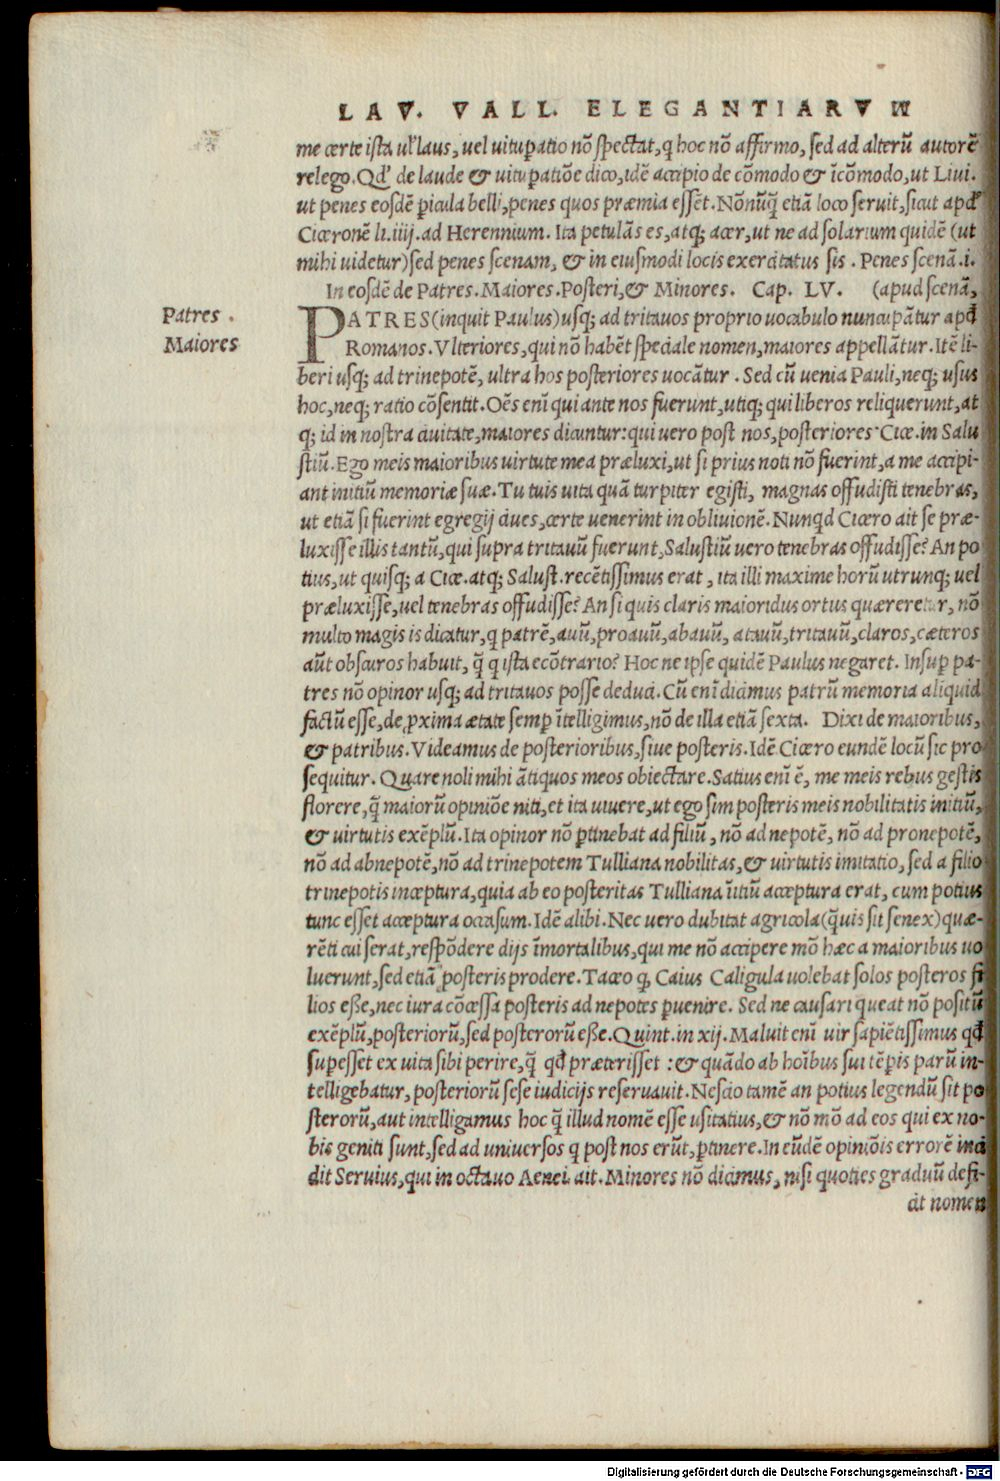 LAV. VALL. ELEGANTIARVM
me certe ista ul' laus, uel uitup̱atio nõ spectat, q hoc nõ affirmo, sed ad alterũ autorẽ
relego. Qd' de laude & uitup̱atiõe dico, idẽ accipio de cõmodo & ĩcõmodo, ut Liui.
ut penes eosdẽ p̱icula belli, penes quos præmia essẽt. Nõnũq̃ etiã loco seruit, sicut apd'
Ciceronẽ li. iiij. ad Herennium. Ita petulãs es, atq; acer, ut ne ad solarium quidẽ (ut
mihi uidetur) sed penes scenam, & in eiusmodi locis exercitatus sis. Penes scenã. i.
In eosdẽ de Patres. Maiores. Posteri, & Minores. Cap. LV. (apud scenã,
Patres.
Maiores
PATRES (inquit Paulus) usq; ad tritauos proprio uocabulo nuncupãtur apd'
Romanos. Vlteriores, qui nõ habẽt speciale nomen, maiores appellãtur. Itẽ li-
beri usq; ad trinepotẽ, ultra hos posteriores uocãtur. Sed cũ uenia Pauli, neq; usus
hoc, neq; ratio cõsentit. Oẽs enĩ qui ante nos fuerunt, utiq; qui liberos reliquerunt, at
q; id in nostra ciuitate, maiores dicuntur: qui uero post nos, posteriores. Cice. in Salu
stiũ. Ego meis maioribus uirtute mea præluxi, ut si prius noti nõ fuerint, a me accipi-
ant initiũ memoriæ suæ. Tu tuis uita quã turpiter egisti, magnas offudisti tenebras,
ut etiã si fuerint egregij ciues, certe uenerint in obliuionẽ. Nunqd Cicero ait se præ-
luxisse illis tantũ, qui supra tritauũ fuerunt, Salustiũ uero tenebras offudisse? An po
tius, ut quisq; a Cice. atq; Salust. recẽtissimus erat, ita illi maxime horũ utrunq; uel
præluxisse, uel tenebras offudisse? An si quis claris maioribus ortus quæreretur, nõ
multo magis is dicatur, q patrẽ, auũ, proauũ, abauũ, atauũ, tritauũ, claros, cæteros
aũt obscuros habuit, q̃ q ista ecõtrario? Hoc ne ipse quidẽ Paulus negaret. Insup̱ pa-
tres nõ opinor usq; ad tritauos posse deduci. Cũ enĩ dicimus patrũ memoria aliquid
factũ esse, de p̱xima ætate semp̱ ĩtelligimus, nõ de illa etiã sexta. Dixi de maioribus,
& patribus. Videamus de posterioribus, siue posteris. Idẽ Cicero eundẽ locũ sic pro
sequitur. Quare noli mihi ãtiquos meos obiectare. Satius enĩ ẽ, me meis rebus gestis
florere, q̃ maiorũ opiniõe niti, et ita uiuere, ut ego sim posteris meis nobilitatis initiũ,
& uirtutis exẽplũ. Ita opinor nõ p̱tinebat ad filiũ, nõ ad nepotẽ, nõ ad pronepotẽ,
nõ ad abnepotẽ, nõ ad trinepotem Tulliana nobilitas, & uirtutis imitatio, sed a filio
trinepotis inceptura, quia ab eo posteritas Tulliana ĩitiũ acceptura erat, cum potius
tunc esset acceptura occasum. Idẽ alibi. Nec uero dubitat agricola (q̃uis sit senex) quæ-
rẽti cui serat, respõdere dijs ĩmortalibus, qui me nõ accipere mõ hæc a maioribus uo
luerunt, sed etiã posteris prodere. Taceo q; Caius Caligula uolebat solos posteros fi
lios esse, nec iura cõcessa posteris ad nepotes p̱uenire. Sed ne causari queat nõ positũ
exẽplũ, posteriorũ, sed posterorũ esse. Quint. in xij. Maluit enĩ uir sapiẽtissimus qd'
sup̱esset ex uita sibi perire, q̃ qd' præterisset: & quãdo ab hoĩbus sui tẽp̱is parũ in-
telligebatur, posteriorũ sese iudicijs reseruauit. Nescio tamẽ an potius legendũ sit po
sterorũ, aut intelligamus hoc q̃ illud nomẽ esse usitatius, & nõ mõ ad eos qui ex no-
bis geniti sunt, sed ad uniuersos q post nos erũt, p̱tinere. In eũdẽ opiniõis errorẽ inci
dit Seruius, qui in octauo Aenei. ait. Minores nõ dicimus, nisi quoties graduũ defi-
cit nomen
Digitalisierung gefördert durch die Deutsche Forschungsgemeinschaft - DFG